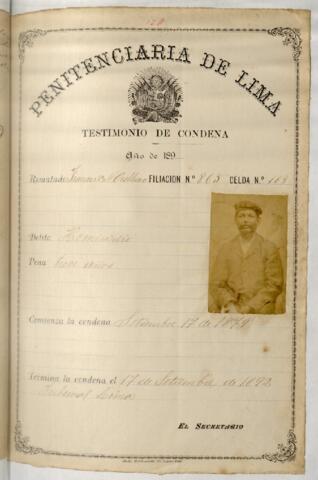 120
PENITENCIARIA DE LIMA
TESTIMONIO DE CONDENA
Año de 189
Rematado Orellano FILIACION N.º 865 CELDA N.º
Delito Homicidio
Pena años
Comienza la condena Setiembre 17 de 1879
Termina la condena el 17 de Setiembre de 1892
Tribunal Lima
EL SECRETARIO